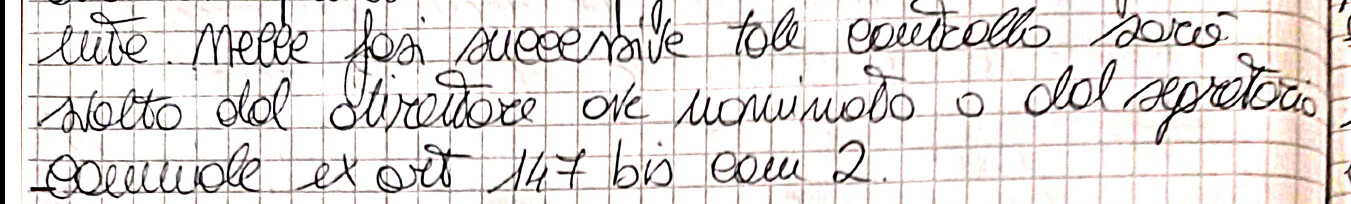 ente. Nelle fasi successive tale controllo sarà
svolto dal direttore ove nominato o dal segretario
comunale ex art 147 bis com 2.